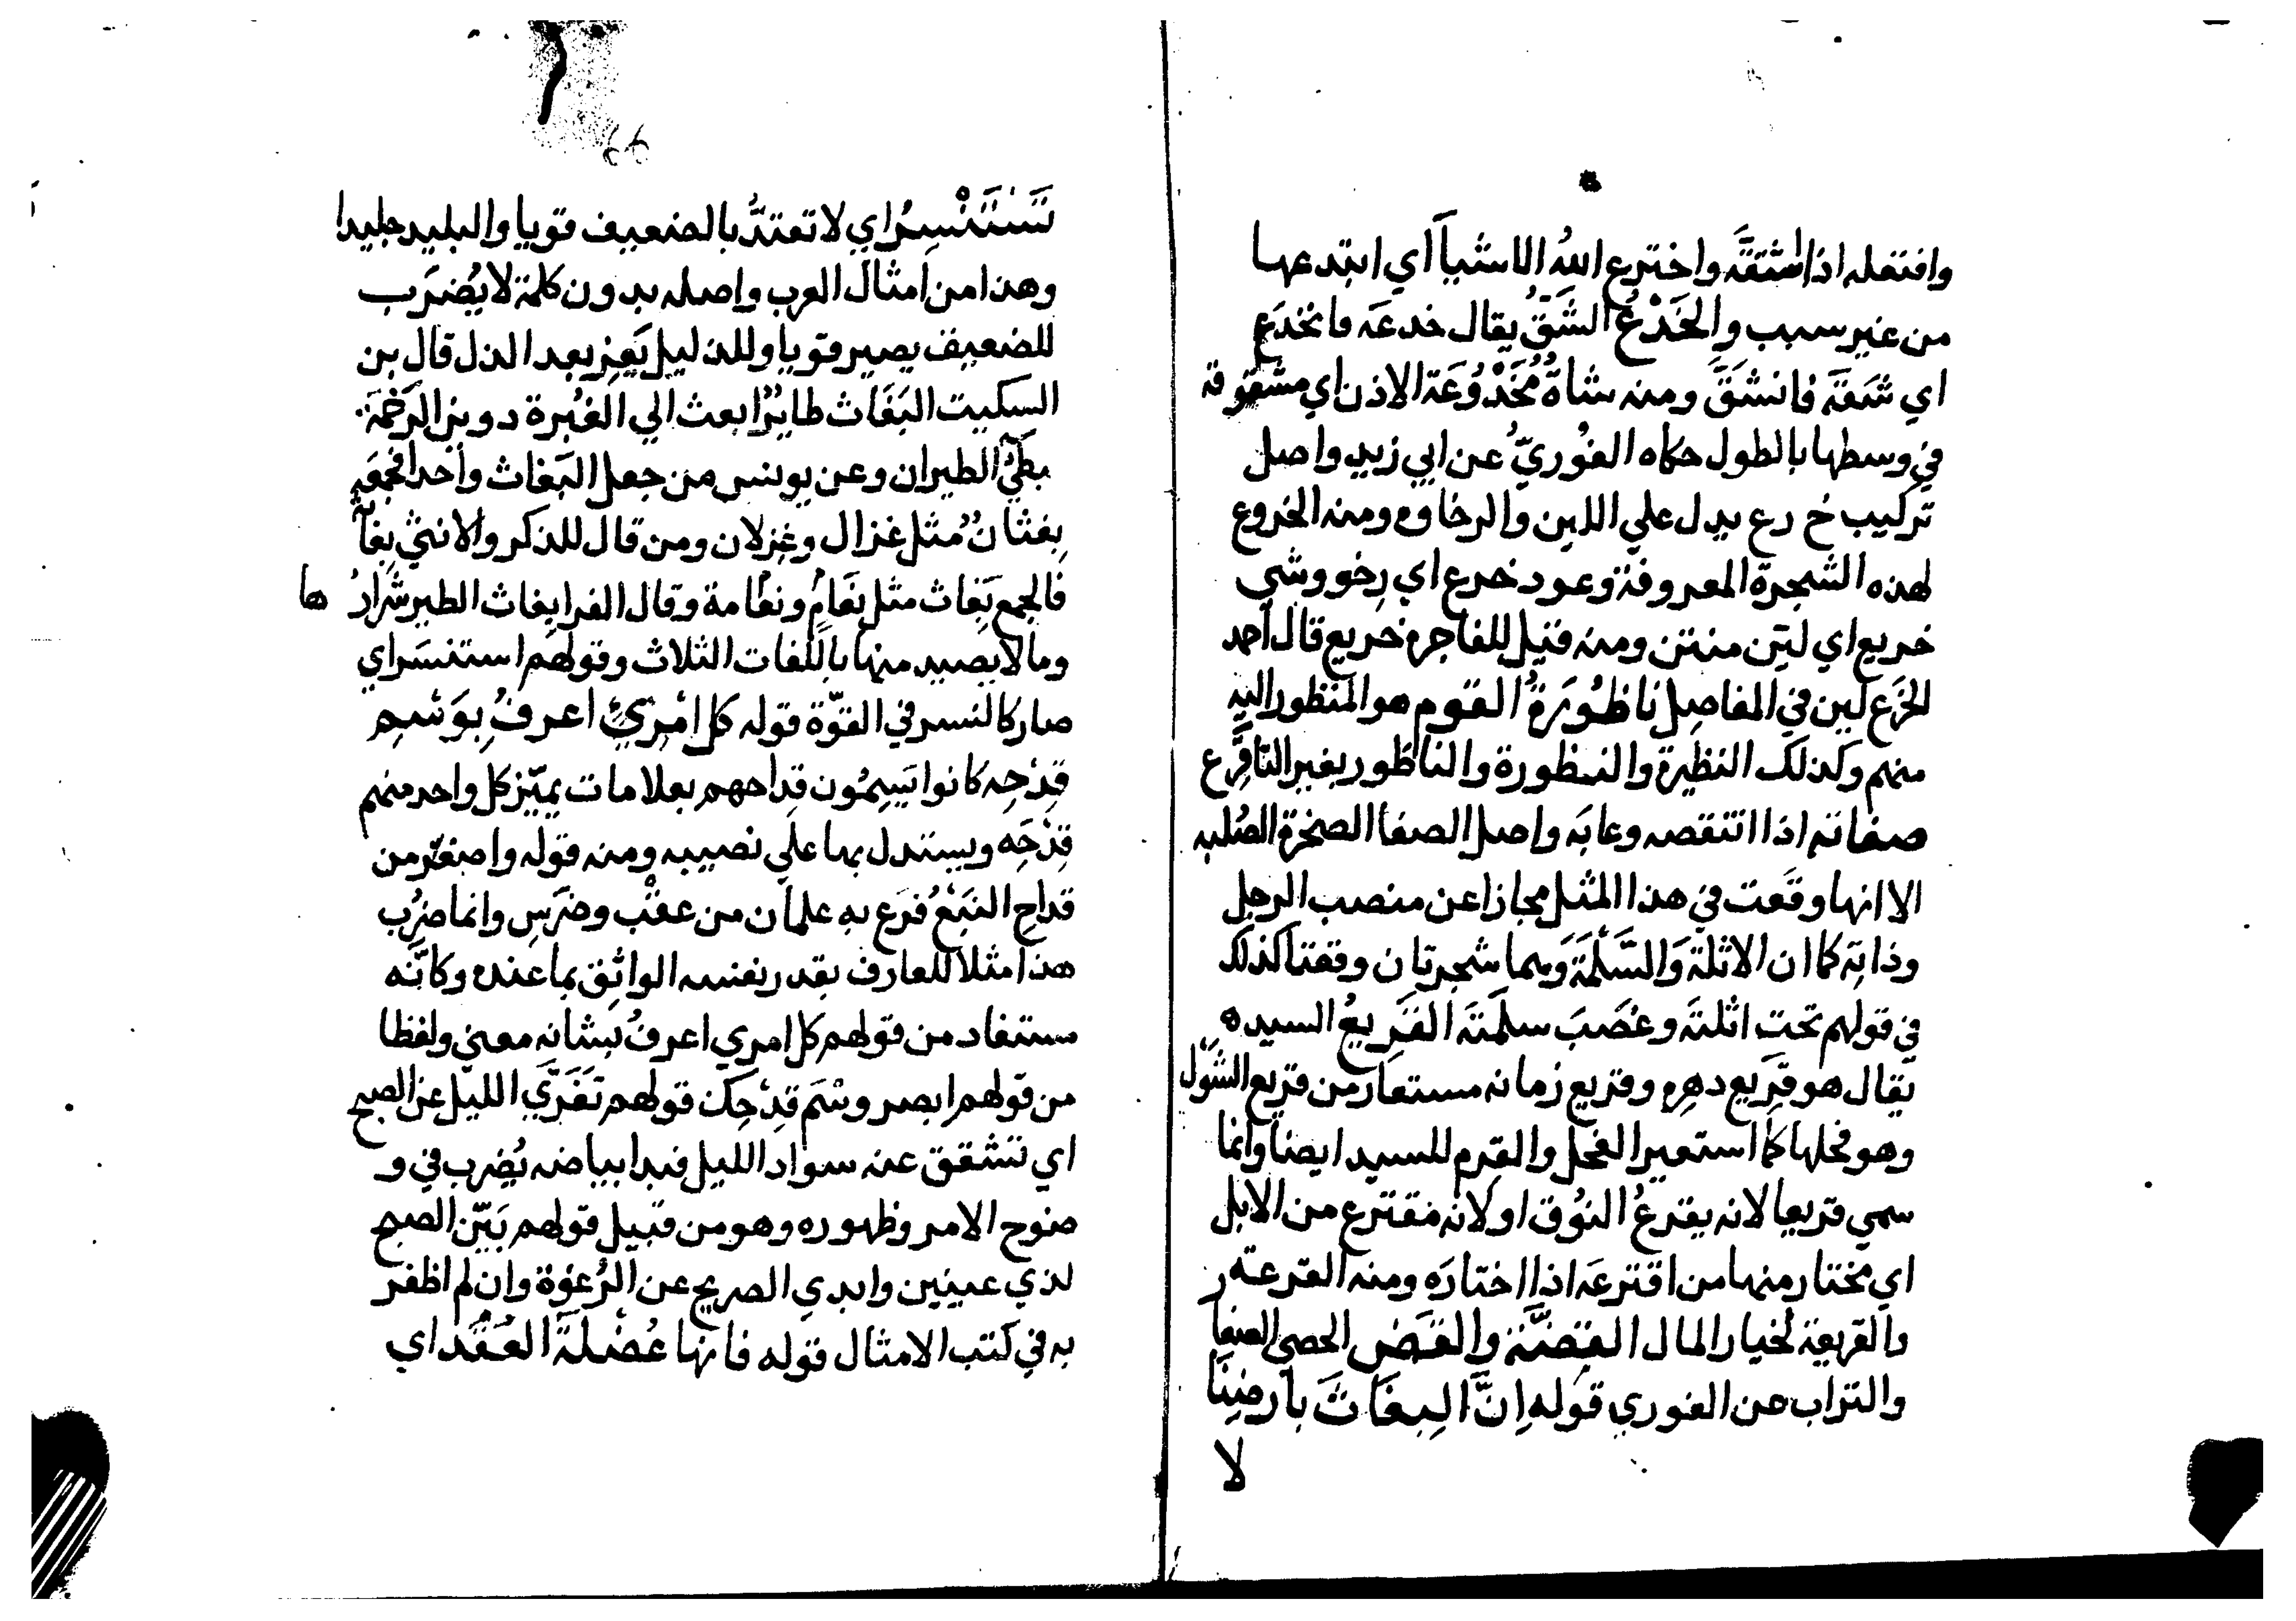 وافتعله اذا اشتقَّه واخترع اللهُ الاشيآ اي ابتدعها
من غير سبب والخَدْعُ الشَّقُّ يقال خدعَه فانخدَع
اي شَقّه فانشَقَّ ومنه شاةٌ مُخَدْوُعَة الاذن اي مشقوقة
في وسطها بالطول حكاه الغُوريّ عن ابي زيد واصل
تركيب خ رع يدل علي اللين والرخاوه ومنه الخروع
لهذه الشجرة المعروفة وعود خرع اي رِخو وشي
خريع اي ليّن منثن ومنه قيل للفاجره خريع قال احمد
الخرَع لين في المفاصل ناظُورَةُ القوم هو المنظور اليه
منهم وكذلك النظيرة والنظورة والناظور بغير التا قرَّع
صفاته اذا انتقصه وعابَه واصل الصفا الصخرة الصُلبه
الا انها وقَعت في هذا المثل مجازا عن منصب الرجل
وذاتِه كما ان الاثلة وَالسَّلَمَةَ وهما شجرتان وقعتا كذلك
في قولهم نحت اثلتَه وعَصَبَ سلمَتَه القَرِيعُ السيد ه
يقال هو قَرِيع دهرِه وقريع زمانه مستعار من قريع الشَوْل
وهو فحلها كما استعير الفحل والقرم للسيد ايضا وانما
سمي قريعا لانه يقترعُ النُوق او لانه مقترع من الابل
اي مختار منها من اقترعَه اذا اختارَه ومنه القرعة ر
والقريعة لخيار المال القِضَّة والقَضَض الحصي الصغا
والتراب عن الغوري قوله اِنَّ البِغَاثَ بارضِنَا
لا
66
تَسْتَنْسِرُ اي لا تعتدَّ بالضعيف قويا والبليد جليدا
وهذا من امثال العرب واصله بدون كلمة لا يُضرَب
للضعيف يصير قويا وللذليل يَعِز بعد الذل قال بن
السكيت البَغَاث طايرٌ ابعث الي الغُبرة دوين الرخَمَة
بطيُّ الطيران وعن يونس من جعل البَغاث واحدا فجمعُه
بِغثانٌ مُثل غزال وغِزلان ومن قال للذكر والانثي بغاث
فالجمع بَغاث مثل نَعامٍ ونعامة وقال الفرا بغاث الطير شرارُ ها
وما لا يصيد منها باللغات الثلاث وقولهم استنسَر اي
صار كالنسر في القوّة قوله كل امْرِئٍ اعرفُ بِوَسْمِ
قِدْحِه كانوا يَسِمُون قِداحهم بعلامات يميّز كل واحد منهم
قِدْحَه ويستدل بها علي نصيبه ومنه قوله واصفر من
قداحِ النَبْعُ فَرع به علمان من عقْب وضرَسِ وانما ضُرب
هذا مثلا للعارف بقدر نفسه الواثِق بما عنده وكانّه
مستفاد من قولهم كل امري اعرفُ بشانِه معني ولفظا
من قولهم ابصر وسْمَ قِدْحِك قولهم تَفَرَّي الليل عن الصبح
اي تشقق عنه سواد الليل فبدا بياضه يُضرب في و
ضوح الامر وظهوره وهو من قبيل قولهم بَيّن الصبح
لذي عينين وابدي الصريح عن الرُغوة وان لم اظفر
به في كتب الامثال قوله فانها عُضْلَةَ العُقَد اي